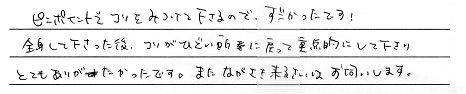 ピンポイントでコリをみつけて下さるので、すごかったです！
全身して下さった後、コリがひどい所に戻って重点的にして下さり
とてもありがたかったです。またながさき来るさいはお伺いします。